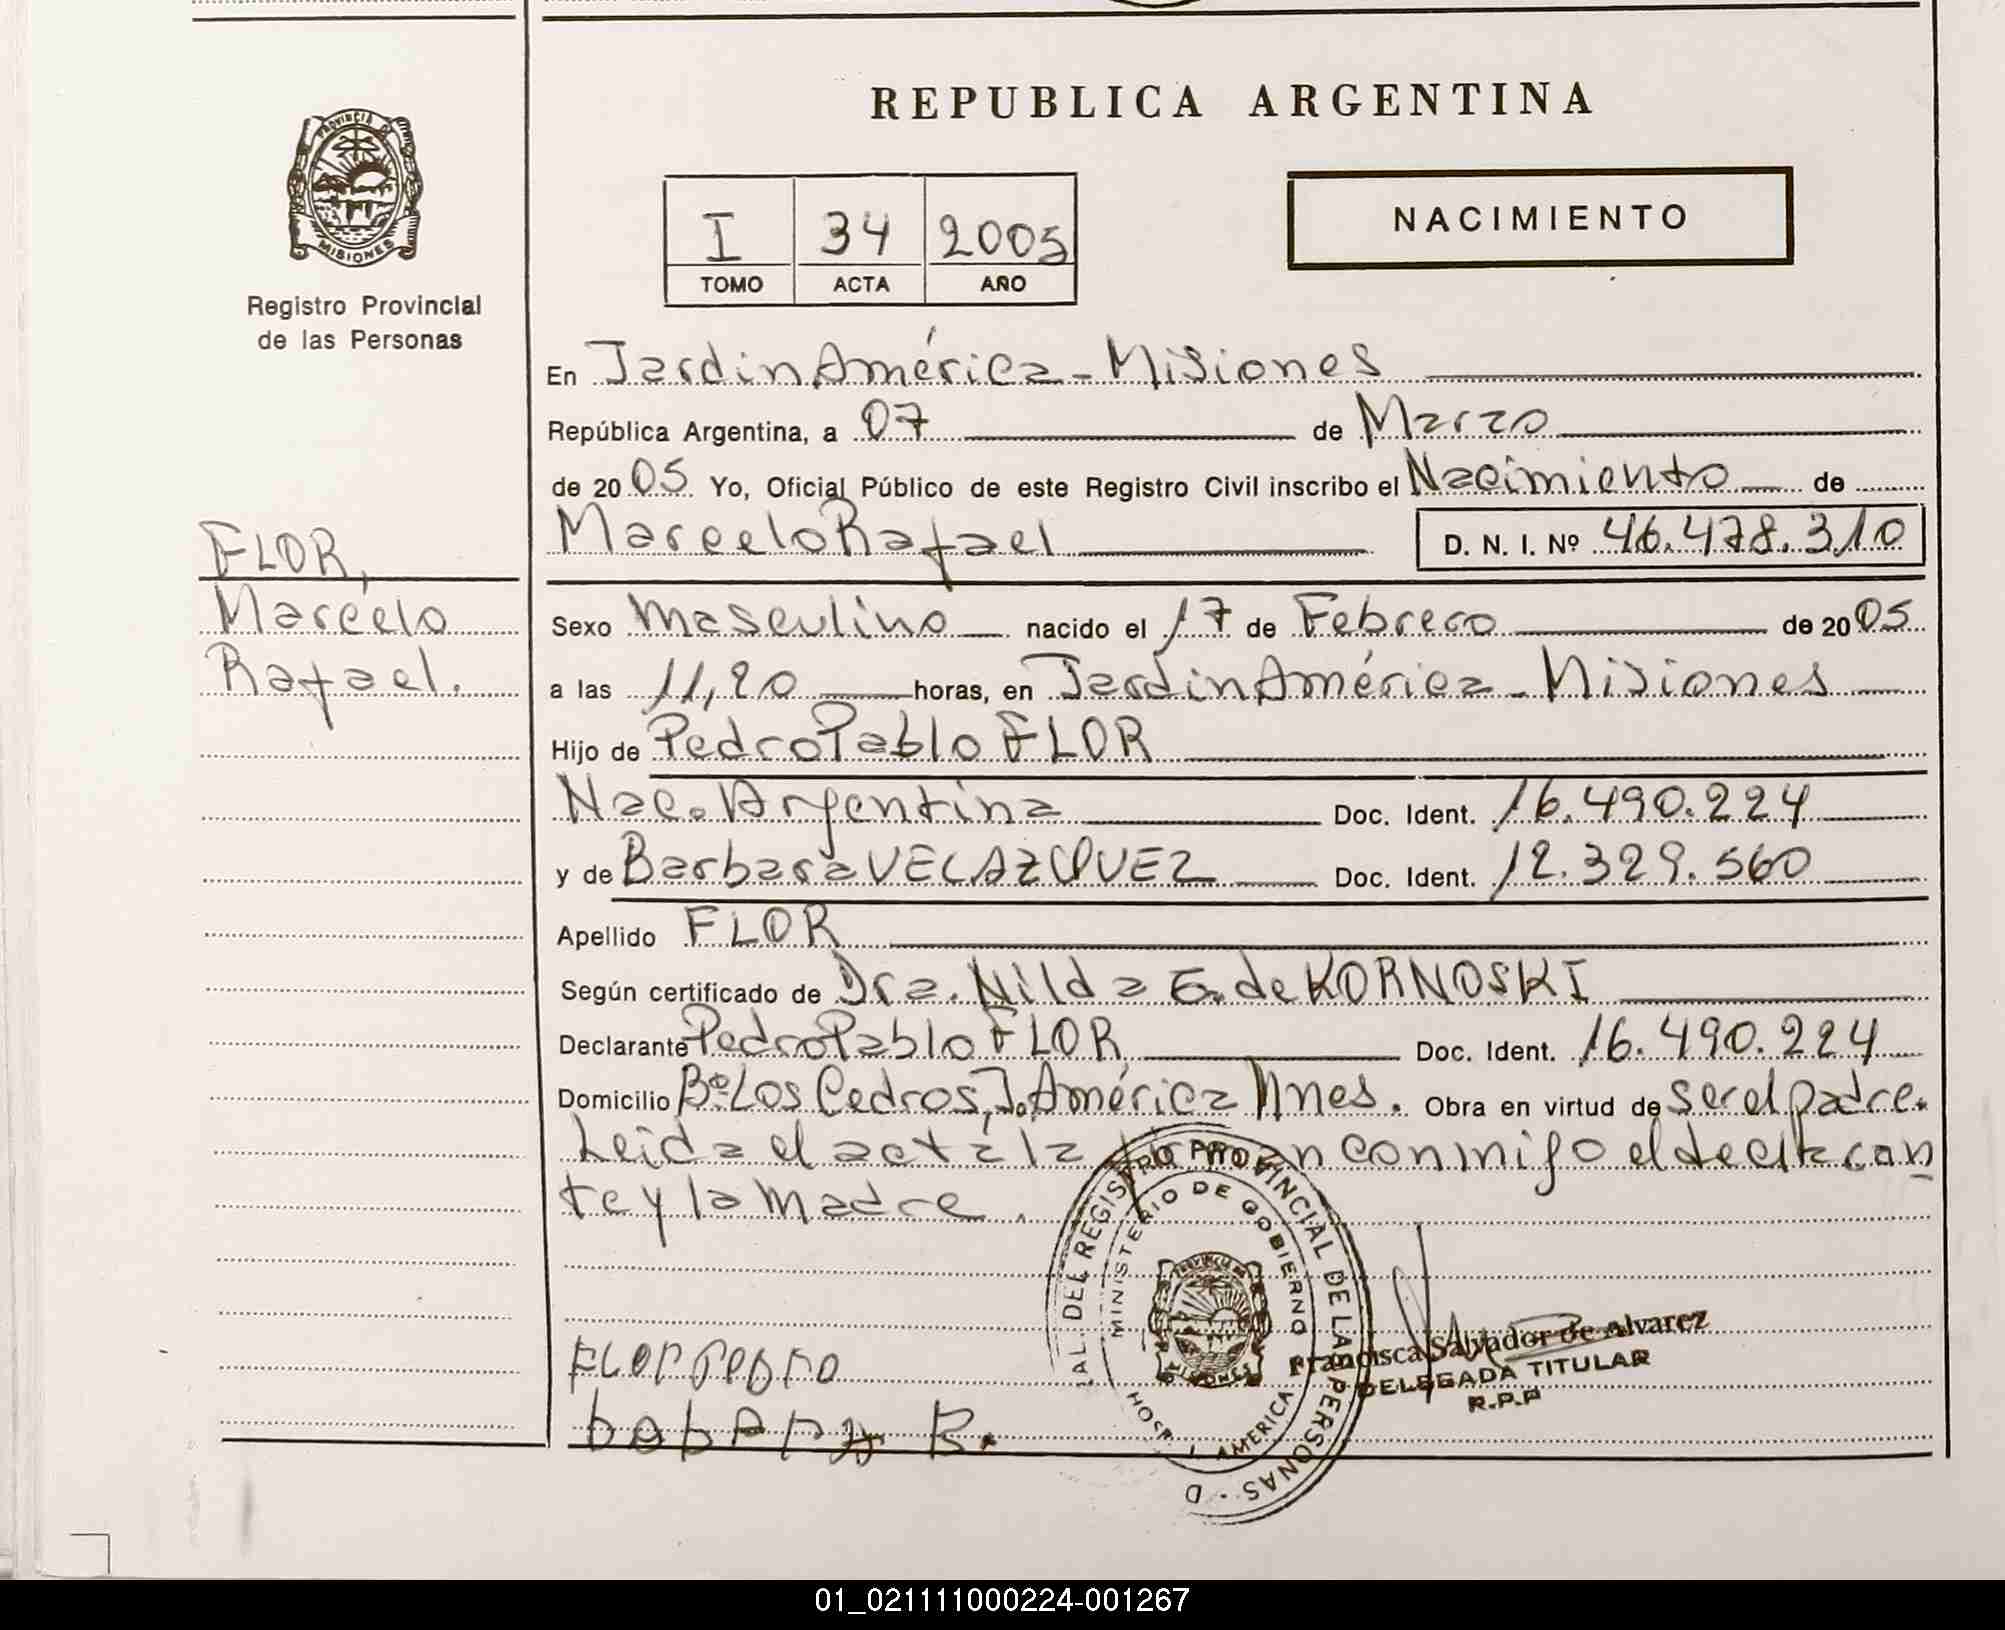 REPUBLICA ARGENTINA
PROVINCIA DE
MISIONES
Registro Provincial
de las Personas
I 34 2005
TOMO ACTA AÑO
NACIMIENTO
En Jardin América - Misiones
República Argentina, a 07 de Marzo
de 20 05 Yo, Oficial Público de este Registro Civil inscribo el Nacimiento de
Marcelo Rafael D. N. I. Nº 46.478.310
FLOR,
Marcelo
Rafael.
Sexo Masculino nacido el 17 de Febrero de 20 05
a las 11,20 horas, en Jardin América - Misiones
Hijo de Pedro Pablo FLOR
Nac. Argentina Doc. Ident. 16.490.224
y de Barbara VELAZQUEZ Doc. Ident. 12.329.560
Apellido FLOR
Según certificado de Dra. Nilda G. de KORNOSKI
Declarante Pedro Pablo FLOR Doc. Ident. 16.490.224
Domicilio Bº Los Cedros, J. América Mnes. Obra en virtud de ser el padre.
Leida el acta la firman conmigo el declaran
te y la madre.
FLOR PEDRO
bobARA B.
DEL REGISTRO PROVINCIAL DE LAS PERSONAS - D
MINISTERIO DE GOBIERNO
PROVINCIA DE
MISIONES
HOSP. J. AMERICA
Francisca Salvador de Alvarez
DELEGADA TITULAR
R.P.P
01_021111000224-001267